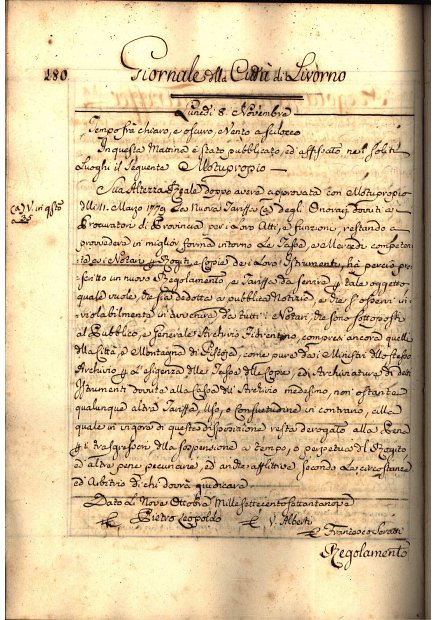 280
Giornale della Città di Livorno
Lunedì 8. Novembre
Tempo frà chiaro, e oscuro, Vento a Scilocco
In questa Mattina è stato pubblicato, ed affissato ne' soliti
Luoghi il seguente Motuproprio
Sua Altezza Reale doppo avere approvata con Motuproprio
dell' 11. Marzo 1779 La Nuova Tariffa (a) degli Onorarj dovuti a'
(a) V. in qsto
Procuratori di Provincia per i Loro Atti, e funzioni, restando a
provedere in miglior forma intorno Le Tasse, e Mercedi competen
ti a i Notari p Rogiti e Copie de i Loro Istrumenti, hà perciò pre
scritto un nuovo Regolamento, e Tariffa da servire p tale oggetto
quale vuole, che sia dedotta a pubblica Notizia, e che si osservi in
violabilmente in avvenire da tutti i Notari, che sono sottoposti
al Pubblico, e Generale Archivio Fiorentino, compresi ancora quelli
della Città, e Montagna di Pistoja, come pure da i Ministri dello stesso
Archivio p L'esigenza delle Tasse delle Copie, ed Archiviatura di detti
Istrumenti dovute alla Cassa dell' Archivio medesimo, non ostante
qualunque altra Tariffa, Uso, o Consuetudine in contrario, alla
quale in vigore di questa disposizione resta derogato alla Pena
p i trasgressori della sospensione a tempo, o perpetua dal Rogito,
ed altre pene pecuniarie, ed anche afflittive secondo Le circostanze
ed Arbitrio di chi dovrà giudicare
Dato Lì Nove Ottobre Mille settecento settantanove
Pietro Leopoldo
V. Alberti
Francesco Seratti
Regolamento